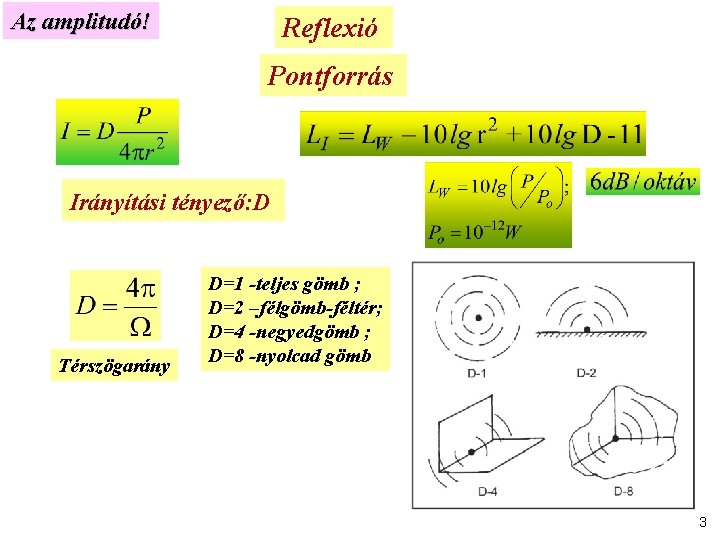 Az amplitudó!
Reflexió
Pontforrás
I = D P / 4πr²
L_I = L_W − 10 lg r² + 10 lg D - 11
Irányítási tényező:D
L_W = 10 lg (P / P_o) ;
6 dB / oktáv
P_o = 10⁻¹² W
D = 4π / Ω
Térszögarány
D=1 -teljes gömb ;
D=2 –félgömb-féltér;
D=4 -negyedgömb ;
D=8 -nyolcad gömb
D-1
D-2
D-4
D-8
3